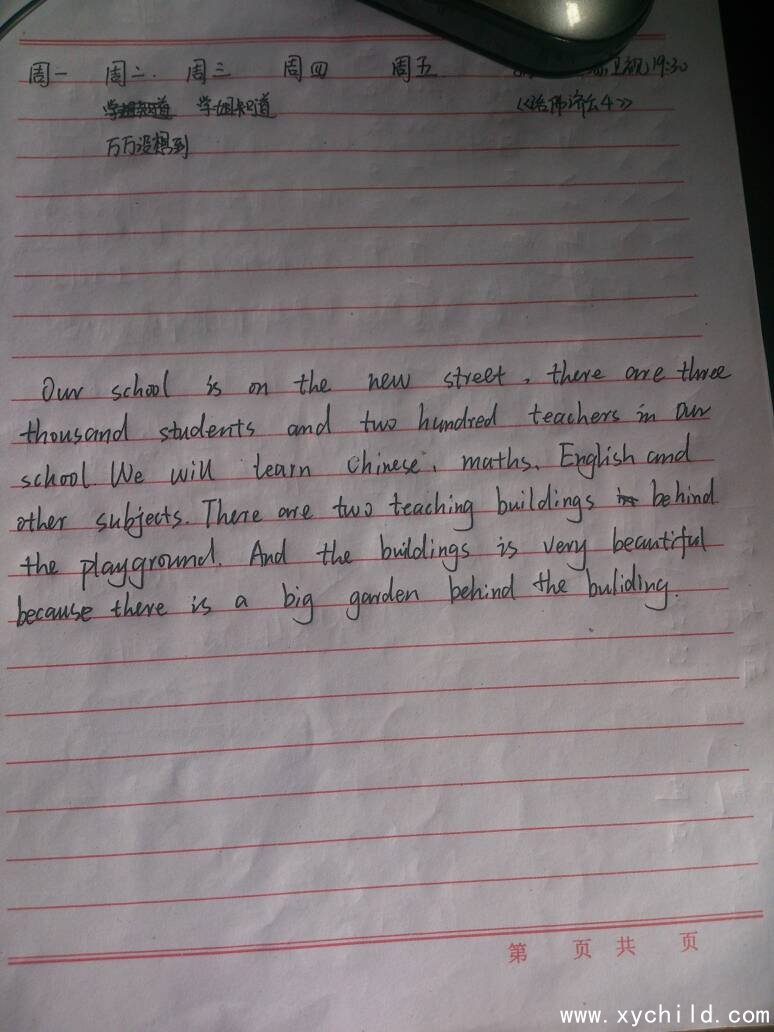 周一 周二. 周三 周四 周五 卫视19:30
学姐知道 学姐知道 《活佛济公4》
万万没想到
Our school is on the new street, there are three
thousand students and two hundred teachers in our
school. We will learn Chinese、maths、English and
other subjects. There are two teaching buildings in behind
the playground. And the buildings is very beautiful
because there is a big garden behind the buliding.
第 页 共 页
www.xychild.com